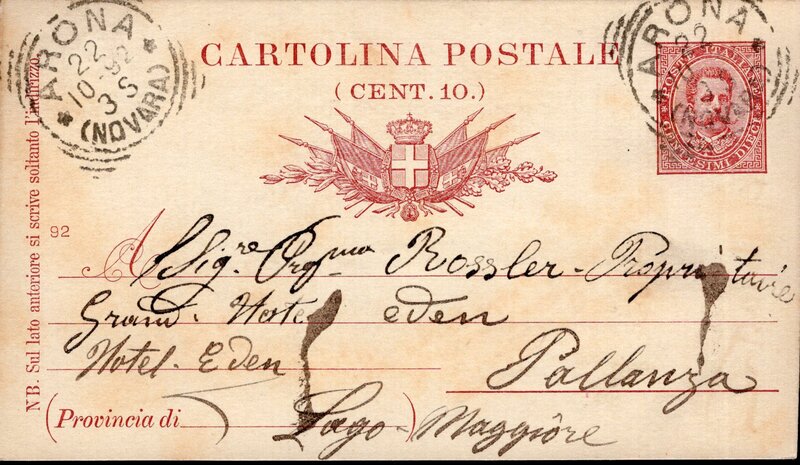 ARONA
22
10 92
3 S
(NOVARA)
CARTOLINA POSTALE
(CENT. 10.)
ARONA
22
(NOVARA)
POSTE ITALIANE
CENTESIMI DIECI
NB. Sul lato anteriore si scrive soltanto l'indirizzo.
92
A
Sig.re Orgma Rossler-Proprietaire
Grand. Hotel eden
Hotel. Eden
Pallanza
(Provincia di )
Lago-Maggiore